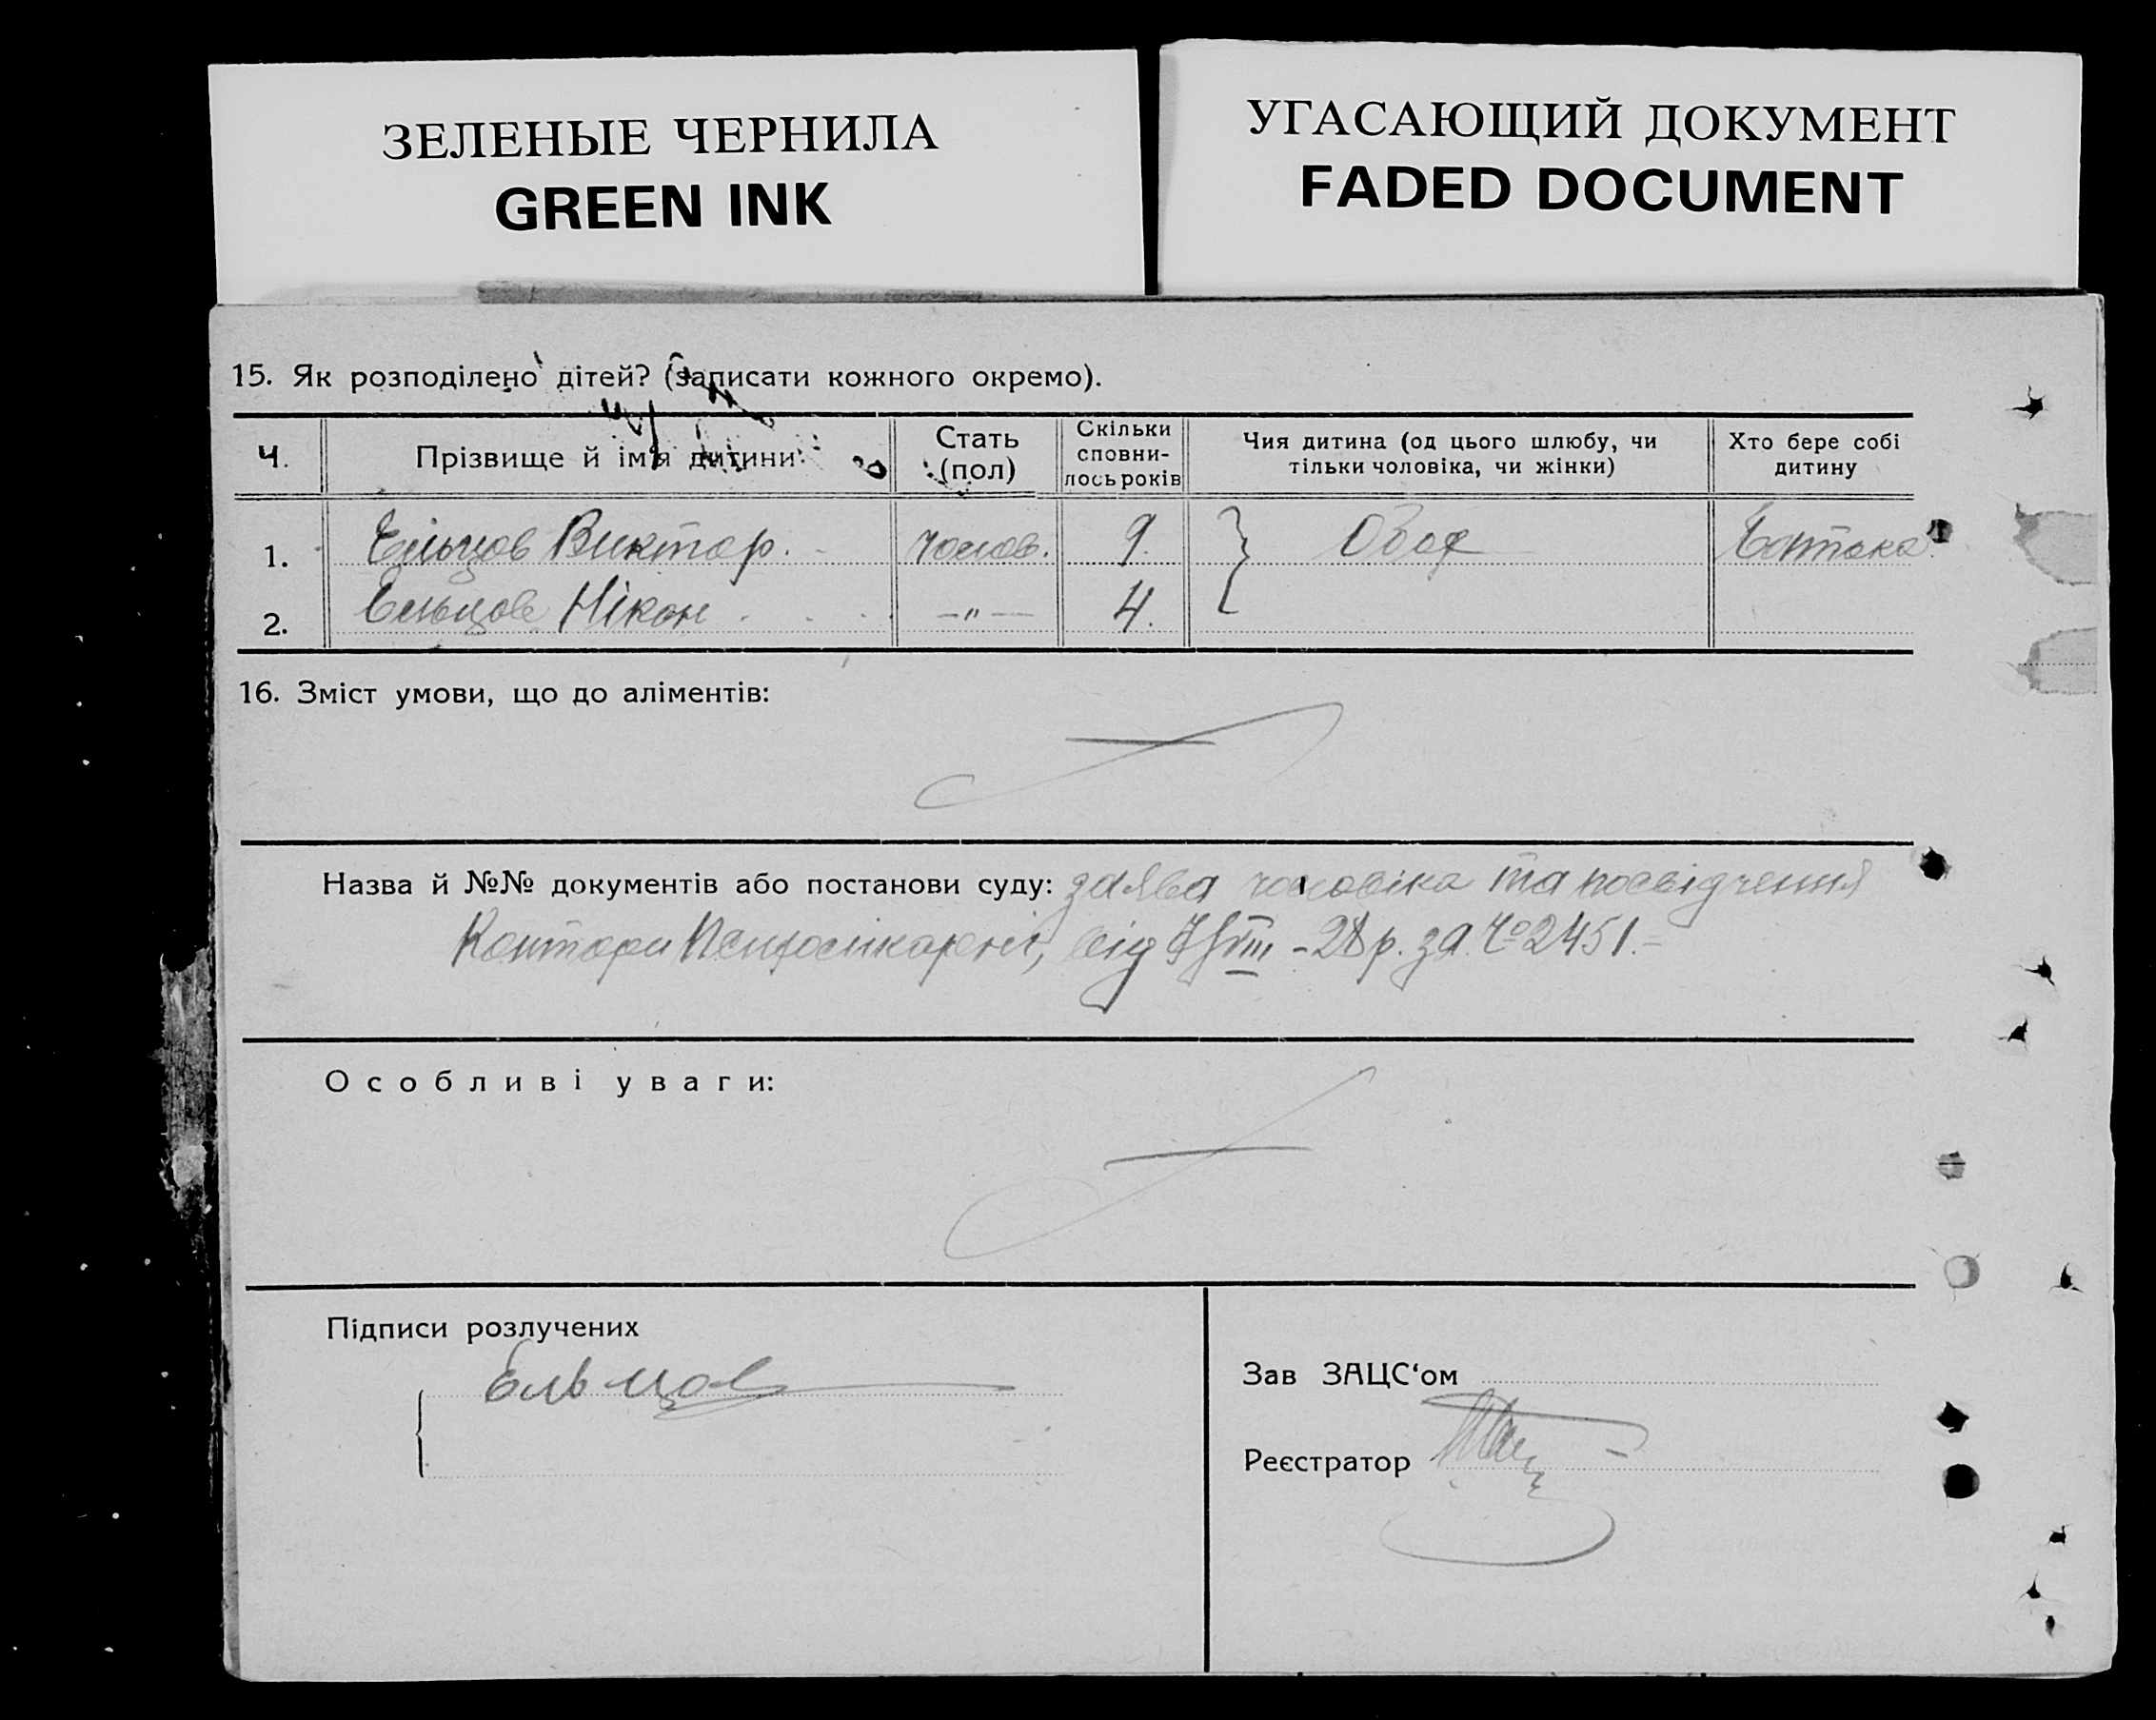 ЗЕЛЕНЫЕ ЧЕРНИЛА
GREEN INK
УГАСАЮЩИЙ ДОКУМЕНТ
FADED DOCUMENT
15. Як розподілено дітей? (записати кожного окремо).
Ч. Прізвище й ім'я дитини Стать (пол) Скільки сповни-лось років Чия дитина (од цього шлюбу, чи тільки чоловіка, чи жінки) Хто бере собі дитину
1. Ельцов Виктор. чолов. 9.
2. Ельцов Нікон -"- 4.
16. Зміст умови, що до аліментів:
Назва й №№ документів або постанови суду: заява чоловіка та посвідчення
Контори Психолікарні, від VIII - 28 р. за Чо 2451.-
Особливі уваги:
Підписи розлучених
Ельцов
Зав ЗАЦС'ом
Реєстратор